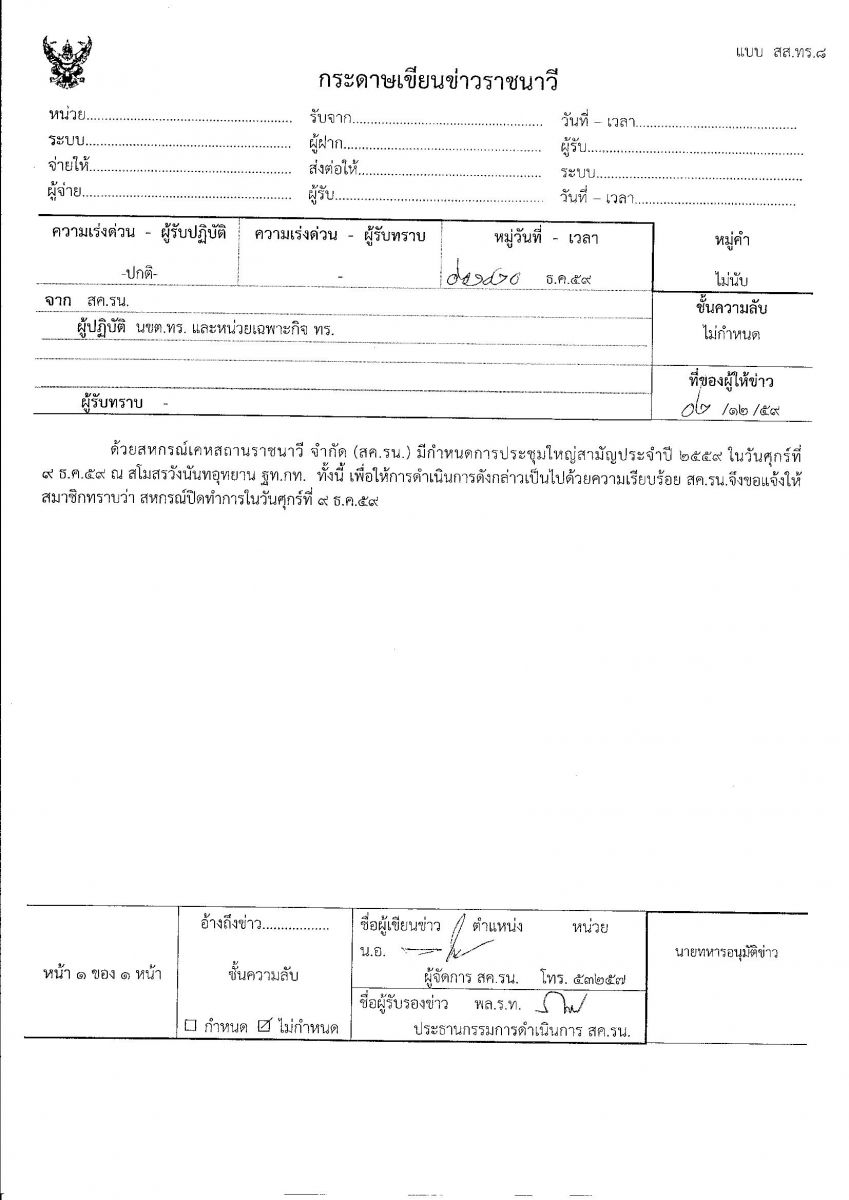 แบบ สส.ทร.๘
กระดาษเขียนข่าวราชนาวี
หน่วย................................................ รับจาก................................................ วันที่ – เวลา......................................
ระบบ................................................ ผู้ฝาก................................................ ผู้รับ................................................
จ่ายให้................................................ ส่งต่อให้............................................ ระบบ................................................
ผู้จ่าย................................................ ผู้รับ................................................ วันที่ – เวลา......................................
ความเร่งด่วน - ผู้รับปฏิบัติ ความเร่งด่วน - ผู้รับทราบ หมู่วันที่ - เวลา หมู่คำ
-ปกติ- - ธ.ค.๕๙ ไม่นับ
จาก สค.รน. ชั้นความลับ
ผู้ปฏิบัติ นขต.ทร. และหน่วยเฉพาะกิจ ทร. ไม่กำหนด
ที่ของผู้ให้ข่าว
ผู้รับทราบ - /๑๒ /๕๙
ด้วยสหกรณ์เคหสถานราชนาวี จำกัด (สค.รน.) มีกำหนดการประชุมใหญ่สามัญประจำปี ๒๕๕๙ ในวันศุกร์ที่
๙ ธ.ค.๕๙ ณ สโมสรวังนันทอุทยาน ฐท.กท. ทั้งนี้ เพื่อให้การดำเนินการดังกล่าวเป็นไปด้วยความเรียบร้อย สค.รน.จึงขอแจ้งให้
สมาชิกทราบว่า สหกรณ์ปิดทำการในวันศุกร์ที่ ๙ ธ.ค.๕๙
หน้า ๑ ของ ๑ หน้า
อ้างถึงข่าว..................
ชั้นความลับ
☐ กำหนด ☑ ไม่กำหนด
ชื่อผู้เขียนข่าว ตำแหน่ง หน่วย
น.อ.
ผู้จัดการ สค.รน. โทร. ๕๓๒๕๗
ชื่อผู้รับรองข่าว พล.ร.ท.
ประธานกรรมการดำเนินการ สค.รน.
นายทหารอนุมัติข่าว